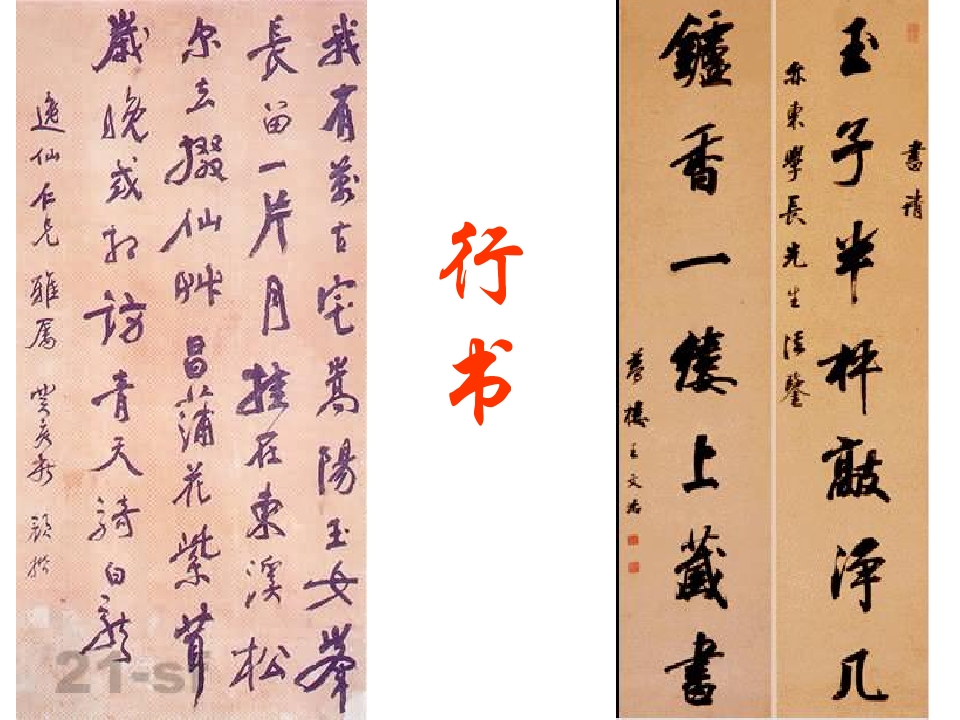 我有萬古宅嵩陽玉女峯
長留一片月挂在東溪松
尔去掇仙艸昌蒲花紫茸
歲晚或相訪青天騎白龍
逸仙仁兄雅属 癸亥
行书
書請
玉子半枰敲淨几
亦東學長先生法鑒
鑪香一縷上藏書
夢樓王文治